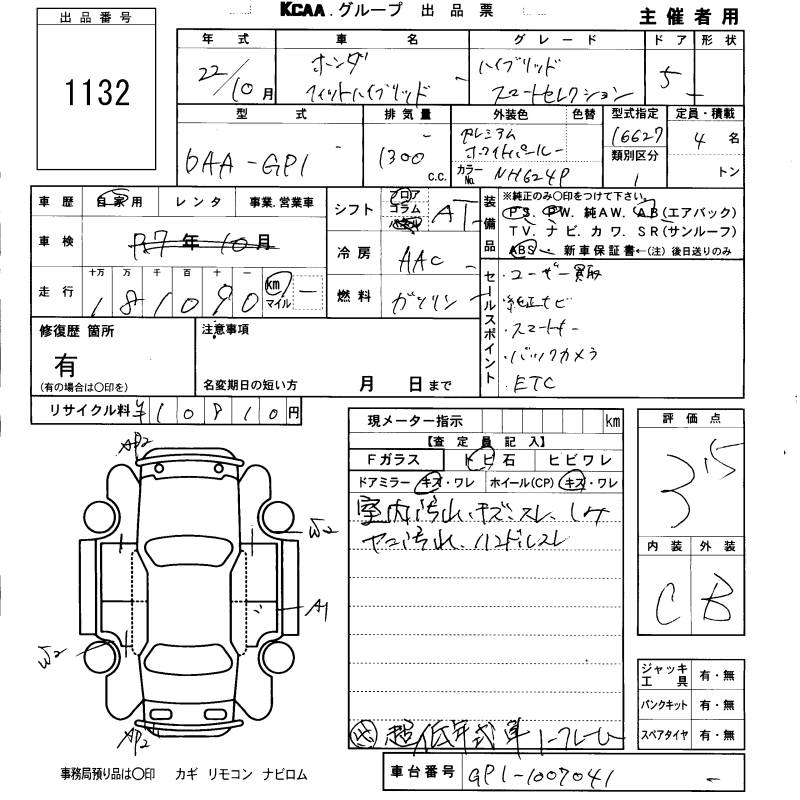 KCAA.グループ 出品票
主催者用
出品番号
1132
年式 車名 グレード ドア 形状
22/10月 ホンダ フィットハイブリッド ハイブリッド スマートセレクション 5 -
型式 排気量 外装色 色替 型式指定 定員・積載
DAA-GP1 1300 c.c. プレミアム ホワイトパール 16627 4名
カラーNo. NH624P 類別区分 1 トン
車歴 自家用 レンタ 事業.営業車
車検 R7年10月
走行 十万 万 千 百 十 一
181090 km マイル -
シフト フロア コラム AT
冷房 AAC -
燃料 ガソリン
装備品 ※純正のみ〇印をつけて下さい。
P S. P W. 純A W. A B (エアバック)
T V. ナビ. カワ. S R (サンルーフ)
ABS 新車保証書←(注) 後日送りのみ
セールスポイント
・ユーザー買取
・純正ナビ
・スマートキー
・バックカメラ
・ETC
修復歴 箇所
有
(有の場合は〇印を)
注意事項
名変期日の短い方 月 日まで
リサイクル料 ¥10910円
現メーター指示 km
【査定員記入】
Fガラス トビ石 ヒビワレ
ドアミラー キズ・ワレ ホイール(CP) キズ・ワレ
室内汚れ、キズ、スレ、シケ
ヤニ汚れ、ハンドルスレ
超低年式車
評価点
3.5
内装 外装
C B
AP2
W2
A1
W2
AP2
ジャッキ工具 有・無
パンクキット 有・無
スペアタイヤ 有・無
事務局預り品は〇印 カギ リモコン ナビロム
車台番号 GP1-1007041 -